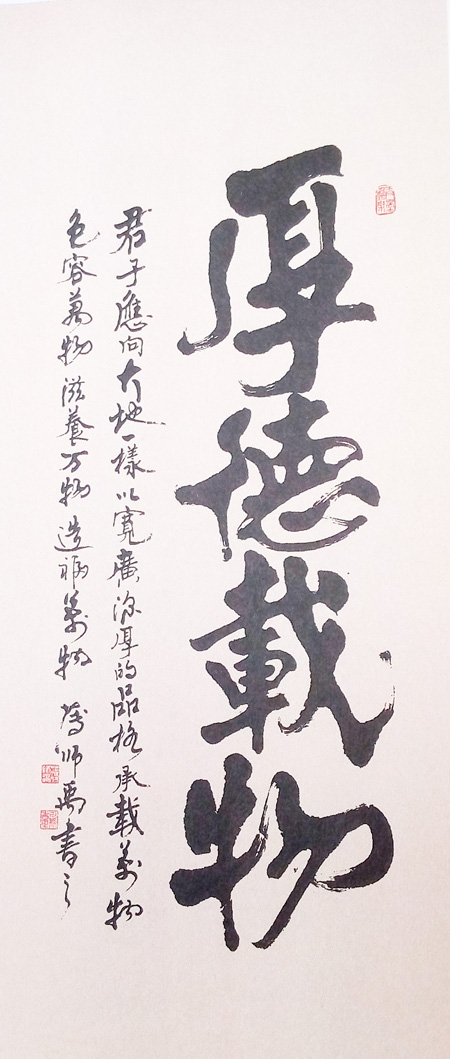 厚德載物
君子應向大地一樣以寬廣深厚的品格承載萬物
包容萬物滋養万物造福萬物 師禹書之